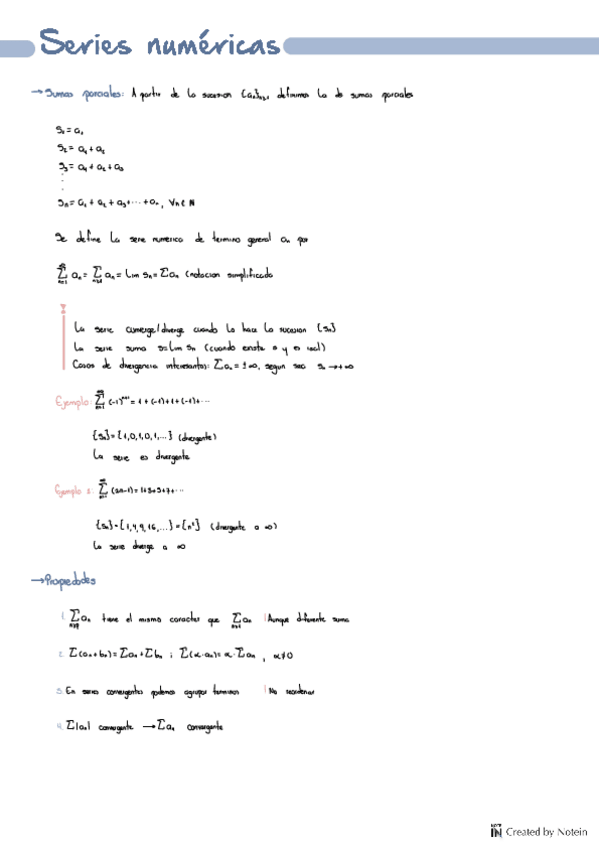 Series numéricas
→Sumas parciales: A partir de la sucesion {aₙ}ₙ≥₁ definimos la de sumas parciales
S₁ = a₁
S₂ = a₁ + a₂
S₃ = a₁ + a₂ + a₃
⋮
Sₙ = a₁ + a₂ + a₃ + ··· + aₙ, ∀n ∈ N
Se define la serie numerica de termino general aₙ por
∑ₙ₌₁^∞ aₙ = ∑ₙ≥₁ aₙ = lim Sₙ = ∑aₙ (notacion simplificada
La serie converge/diverge cuando lo hace la sucesion {Sₙ}
La serie suma s=lim Sₙ (cuando exista y es real)
Casos de divergencia interesantes: ∑aₙ = ±∞, segun sea Sₙ → ±∞
Ejemplo: ∑ₙ₌₁^∞ (-1)ⁿ⁺¹ = 1 + (-1) + 1 + (-1) + ···
{Sₙ} = {1,0,1,0,1,...} (divergente)
La serie es divergente
Ejemplo 2: ∑ₙ₌₁^∞ (2n-1) = 1+3+5+7+···
{Sₙ} = {1,4,9,16,...} = {n²} (divergente a ∞)
La serie diverge a ∞
→Propiedades
1. ∑aₙ tiene el mismo caracter que ∑ₙ≥₁ aₙ ! Aunque diferente suma
2. ∑(aₙ+bₙ) = ∑aₙ + ∑bₙ ; ∑(α·aₙ) = α·∑aₙ , α≠0
3. En series convergentes podemos agrupar terminos ! No reordenar
4. ∑|aₙ| convergente → ∑aₙ convergente
NOTE IN Created by Notein